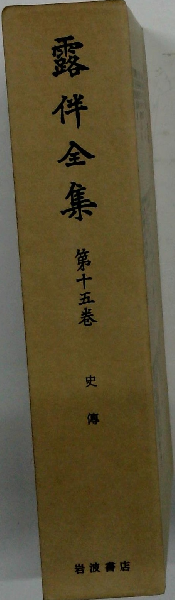 露伴全集
第十五巻
史傳
岩波書店